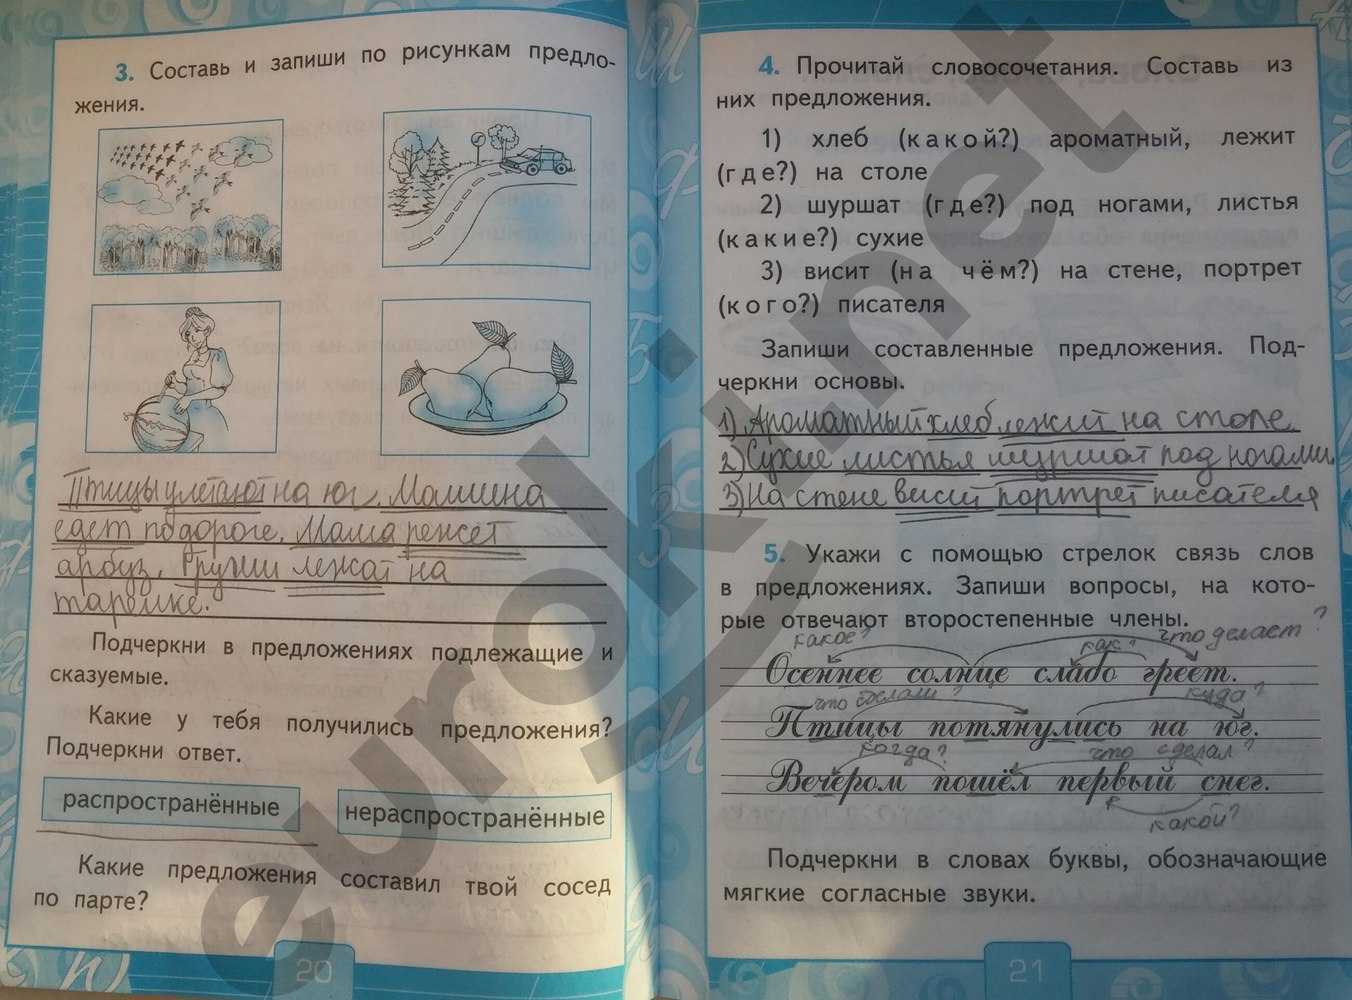 3. Составь и запиши по рисункам предло-
жения.
Птицы улетают на юг. Машина
едет по дороге. Маша режет
арбуз. Груши лежат на
тарелке.
Подчеркни в предложениях подлежащие и
сказуемые.
Какие у тебя получились предложения?
Подчеркни ответ.
распространённые нераспространённые
Какие предложения составил твой сосед
по парте?
20
4. Прочитай словосочетания. Составь из
них предложения.
1) хлеб (какой?) ароматный, лежит
(где?) на столе
2) шуршат (где?) под ногами, листья
(какие?) сухие
3) висит (на чём?) на стене, портрет
(кого?) писателя
Запиши составленные предложения. Под-
черкни основы.
1) Ароматный хлеб лежит на столе.
2) Сухие листья шуршат под ногами.
3) На стене висит портрет писателя
5. Укажи с помощью стрелок связь слов
в предложениях. Запиши вопросы, на кото-
рые отвечают второстепенные члены.
какое? как? что делает?
Осеннее солнце слабо греет.
что сделали? куда?
Птицы потянулись на юг.
когда? что сделал?
Вечером пошёл первый снег.
какой?
Подчеркни в словах буквы, обозначающие
мягкие согласные звуки.
21
euroki.net